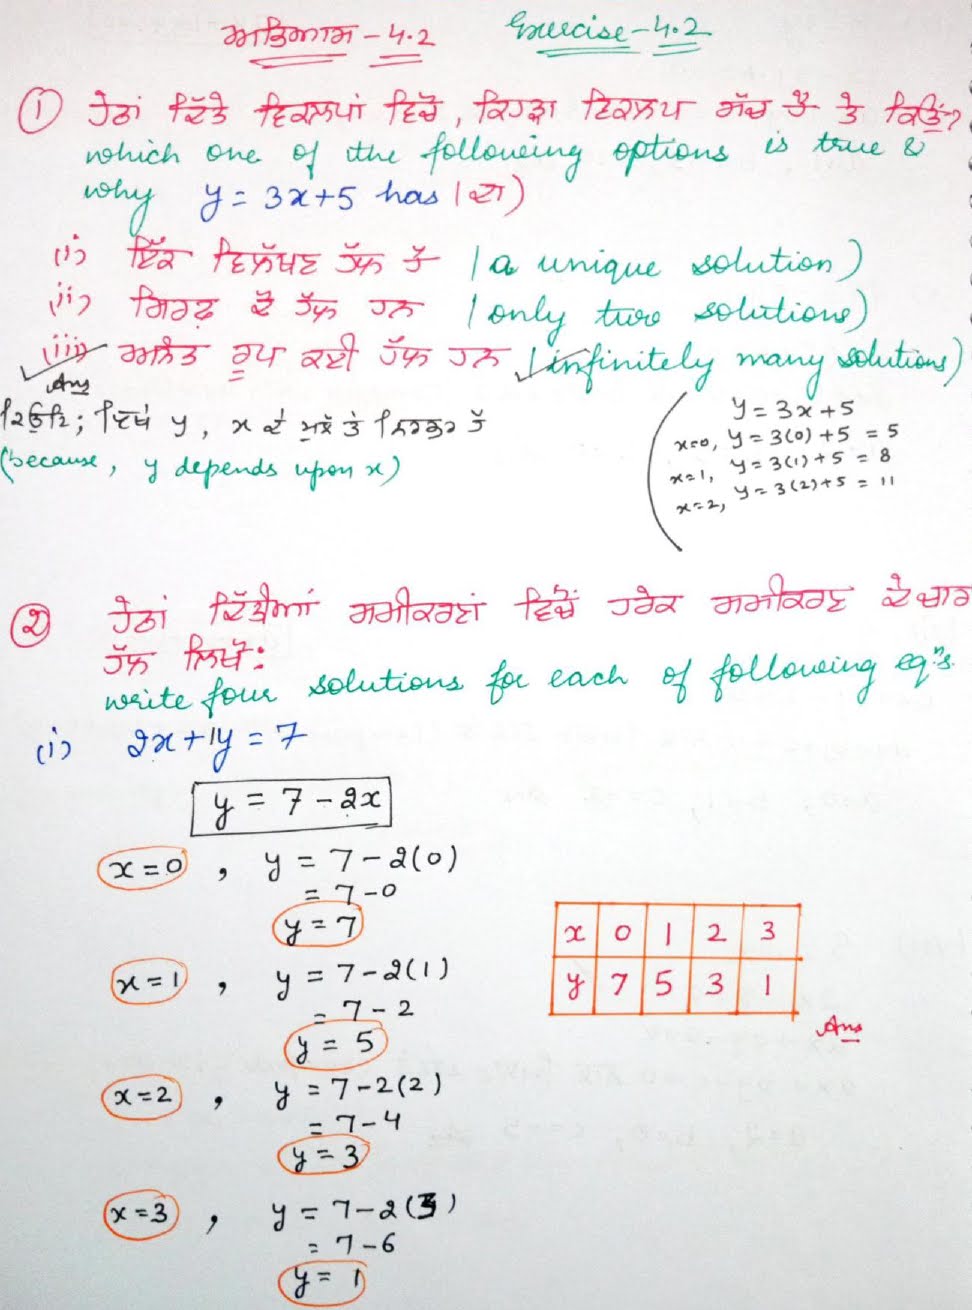 ਅਭਿਆਸ - 4.2 Exercise - 4.2
① ਹੇਠਾਂ ਦਿੱਤੇ ਵਿਕਲਪਾਂ ਵਿੱਚੋਂ, ਕਿਹੜਾ ਵਿਕਲਪ ਸੱਚ ਹੈ ਤੇ ਕਿਉਂ?
which one of the following options is true &
why y = 3x+5 has (ਦਾ)
(i) ਇੱਕ ਵਿਲੱਖਣ ਹੱਲ ਹੈ (a unique solution)
(ii) ਸਿਰਫ਼ ਦੋ ਹੱਲ ਹਨ (only two solutions)
(iii) ਅਨੰਤ ਰੂਪ ਕਈ ਹੱਲ ਹਨ (infinitely many solutions)
Ans
ਕਿਉਂਕਿ; ਇੱਥੇ y, x ਦੇ ਮੁੱਲ ਤੇ ਨਿਰਭਰ ਹੈ
(because, y depends upon x)
y = 3x+5
x=0, y = 3(0)+5 = 5
x=1, y = 3(1)+5 = 8
x=2, y = 3(2)+5 = 11
② ਹੇਠਾਂ ਦਿੱਤੀਆਂ ਸਮੀਕਰਣਾਂ ਵਿੱਚੋਂ ਹਰੇਕ ਸਮੀਕਰਣ ਦੇ ਚਾਰ
ਹੱਲ ਲਿਖੋ:
write four solutions for each of following eqⁿs.
(i) 2x+1y = 7
y = 7 - 2x
x=0, y = 7-2(0)
= 7-0
y = 7
x=1, y = 7-2(1)
= 7-2
y = 5
x=2, y = 7-2(2)
= 7-4
y = 3
x=3, y = 7-2(3)
= 7-6
y = 1
x 0 1 2 3
y 7 5 3 1
Ans